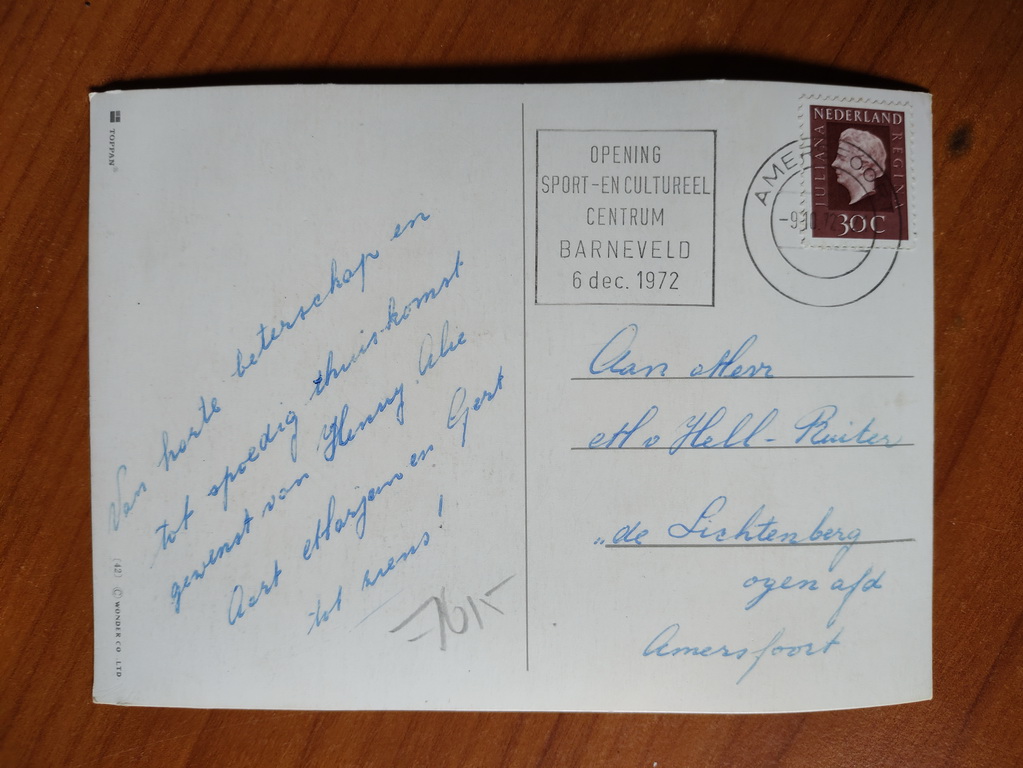 TOPPAN®
(42) © WONDER CO. LTD
Van harte beterschap en
tot spoedig thuiskomst
gewenst van Henny, Alie
Aert Marjan en Gert
tot ziens!
OPENING
SPORT-EN CULTUREEL
CENTRUM
BARNEVELD
6 dec. 1972
NEDERLAND
JULIANA
REGINA
30C
Aan Mevr
M v Hell-Ruiter
„de Lichtenberg
ogen afd
Amersfoort